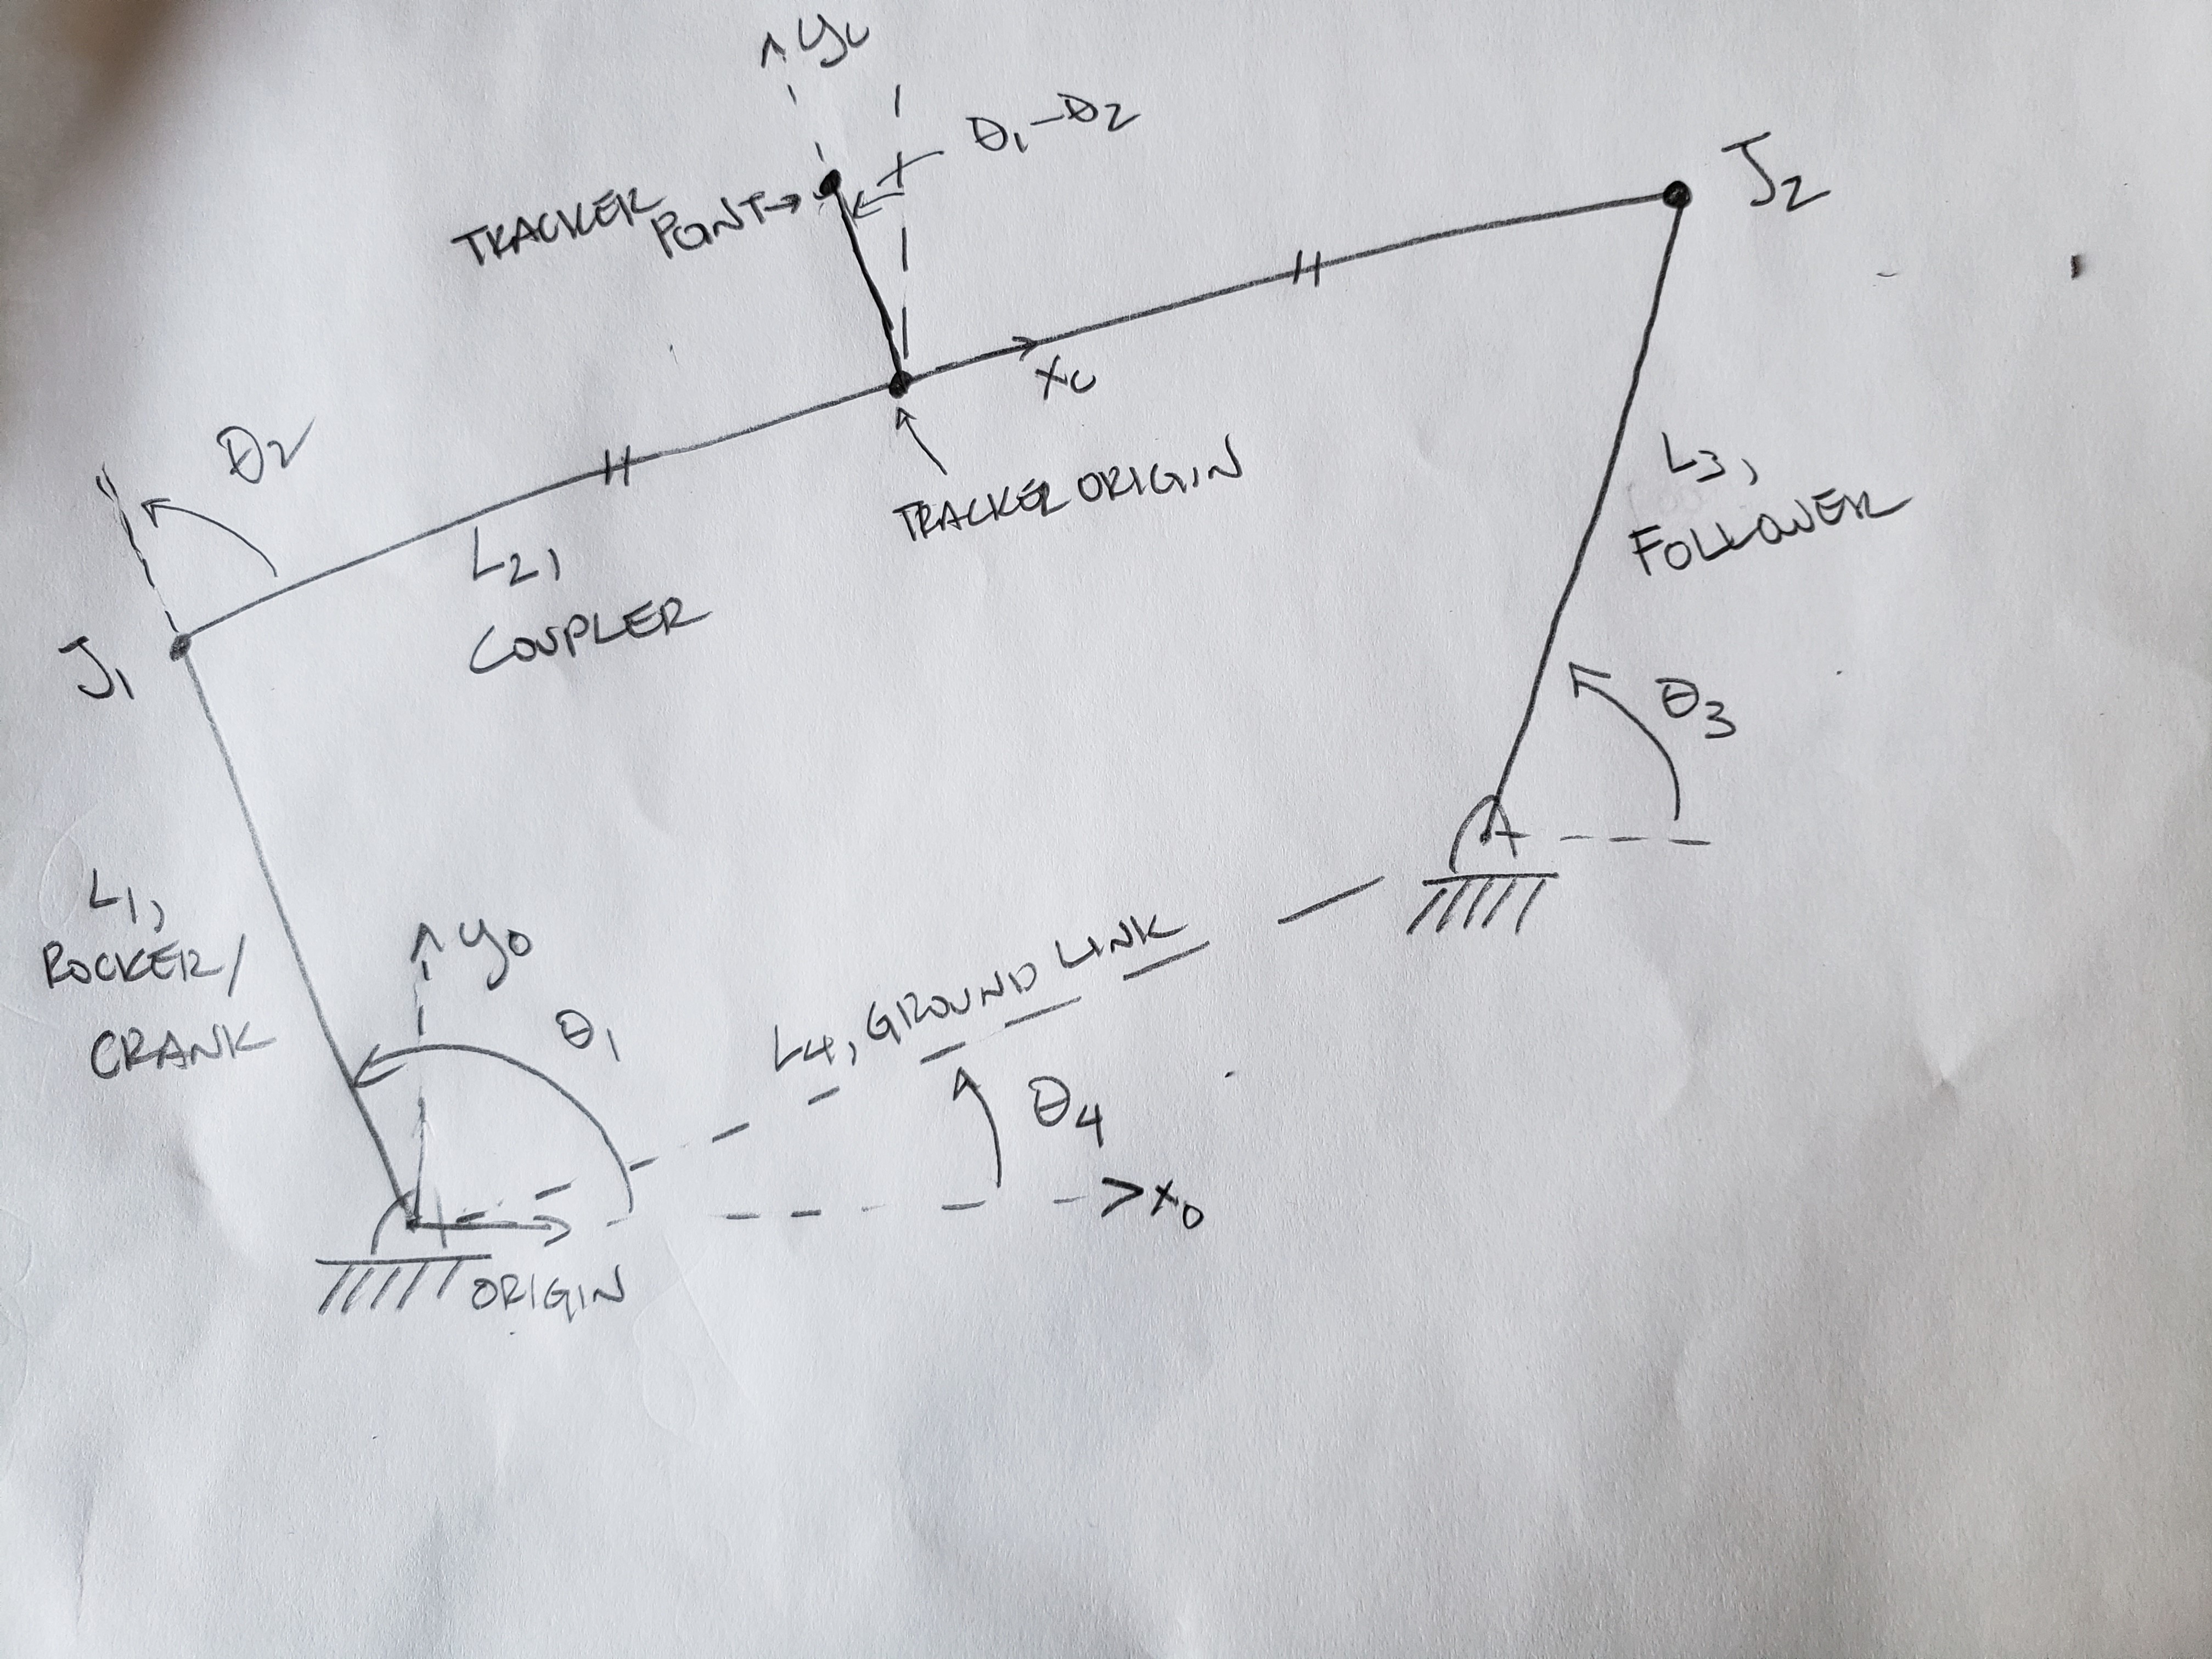 yc
θ1-θ2
TRACKER
POINT→
J2
xc
θ2
TRACKER ORIGIN
L3,
FOLLOWER
L2,
COUPLER
J1
θ3
L1,
ROCKER/
CRANK
y0
θ1
L4, GROUND LINK
θ4
x0
ORIGIN